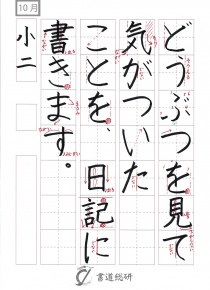 10月
どうぶつを見て
気がついた
ことを、日記に
書きます。
小二
書道総研